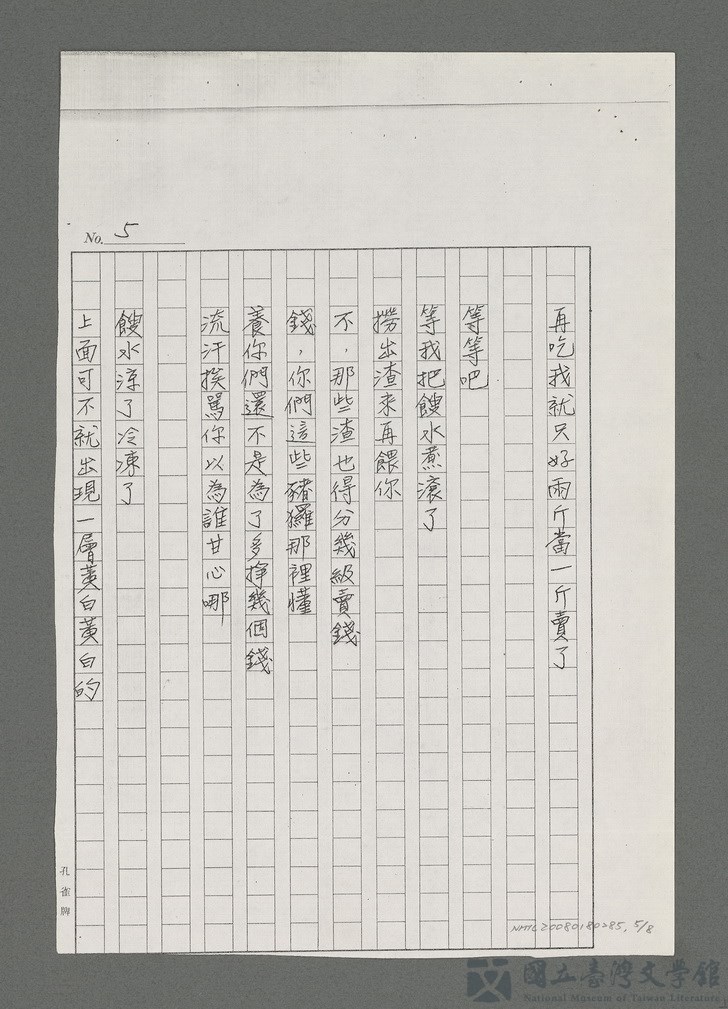 No. 5
再吃我就只好兩斤當一斤賣了
等等吧
等我把餿水煮滾了
撈出渣來再餵你
不，那些渣也得分幾級賣錢
錢，你們這些豬玀那裡懂
養你們還不是為了多掙幾個錢
流汗挨罵你以為誰甘心哪
餿水涼了冷凍了
上面可不就出現一層黃白黃白的
孔雀牌
NMTL20080180285, 5/8
國立臺灣文學館
National Museum of Taiwan Literature